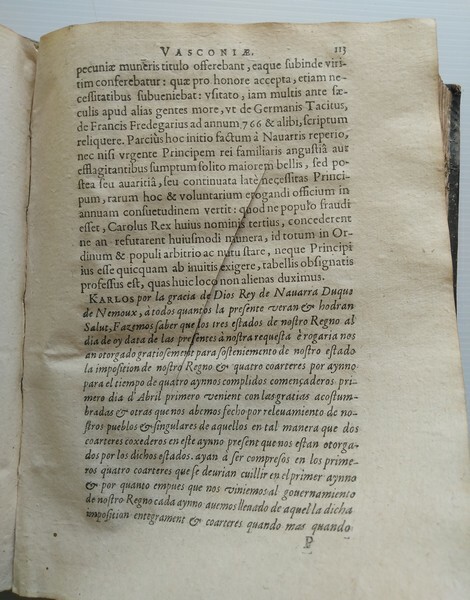 VASCONIÆ. 113
pecuniæ muneris titulo offerebant, eaque subinde viri-
tim conferebatur: quæ pro honore accepta, etiam ne-
cessitatibus subueniebat: vsitato, iam multis ante sæ-
culis apud alias gentes more, vt de Germanis Tacitus,
de Francis Fredegarius ad annum 766 & alibi, scriptum
reliquere. Parcius hoc initio factum à Nauarris reperio,
nec nisi vrgente Principem rei familiaris angustiâ aut
efflagitantibus sumptum solito maiorem bellis, sed po-
stea seu auaritiâ, seu continuata latè necessitas Princi-
pum, rarum hoc & voluntarium erogandi officium in
annuam consuetudinem vertit: quod ne populo fraudi
esset, Carolus Rex huius nominis tertius, concederent
ne an refutarent huiusmodi munera, id totum in Or-
dinum & populi arbitrio ac nutu stare, neque Principi
ius esse quicquam ab inuitis exigere, tabellis obsignatis
professus est, quas huic loco non alienas duximus.
KARLOS por la gracia de Dios Rey de Nauarra Duque
de Nemoux, a todos quantos la presente veran & hodran
Salut, Fazemos saber que los tres estados de nostro Regno al
dia de oy data de las presentes à nostra requesta è rogaria nos
an otorgado gratiosement para sosteniemento de nostro estado
la imposition de nostro Regno & quatro coarteres por aynno
para el tiempo de quatro aynnos complidos començaderos pri-
mero dia d'Abril primero venient con las gratias acostum-
bradas & otras que nos abemos fecho por releuamiento de no-
stros pueblos & singulares de aquellos en tal manera que dos
coarteres coxederos en este aynno present que nos estan otorga-
dos por los dichos estados. ayan à ser compresos en los prime-
ros quatro coarteres que se deurian cuillir en el primer aynno
& por quanto empues que nos viniemos al gouernamiento
de nostro Regno cada aynno auemos lleuado de aquel la dicha
imposition entegrament & coarteres quando mas quando
P